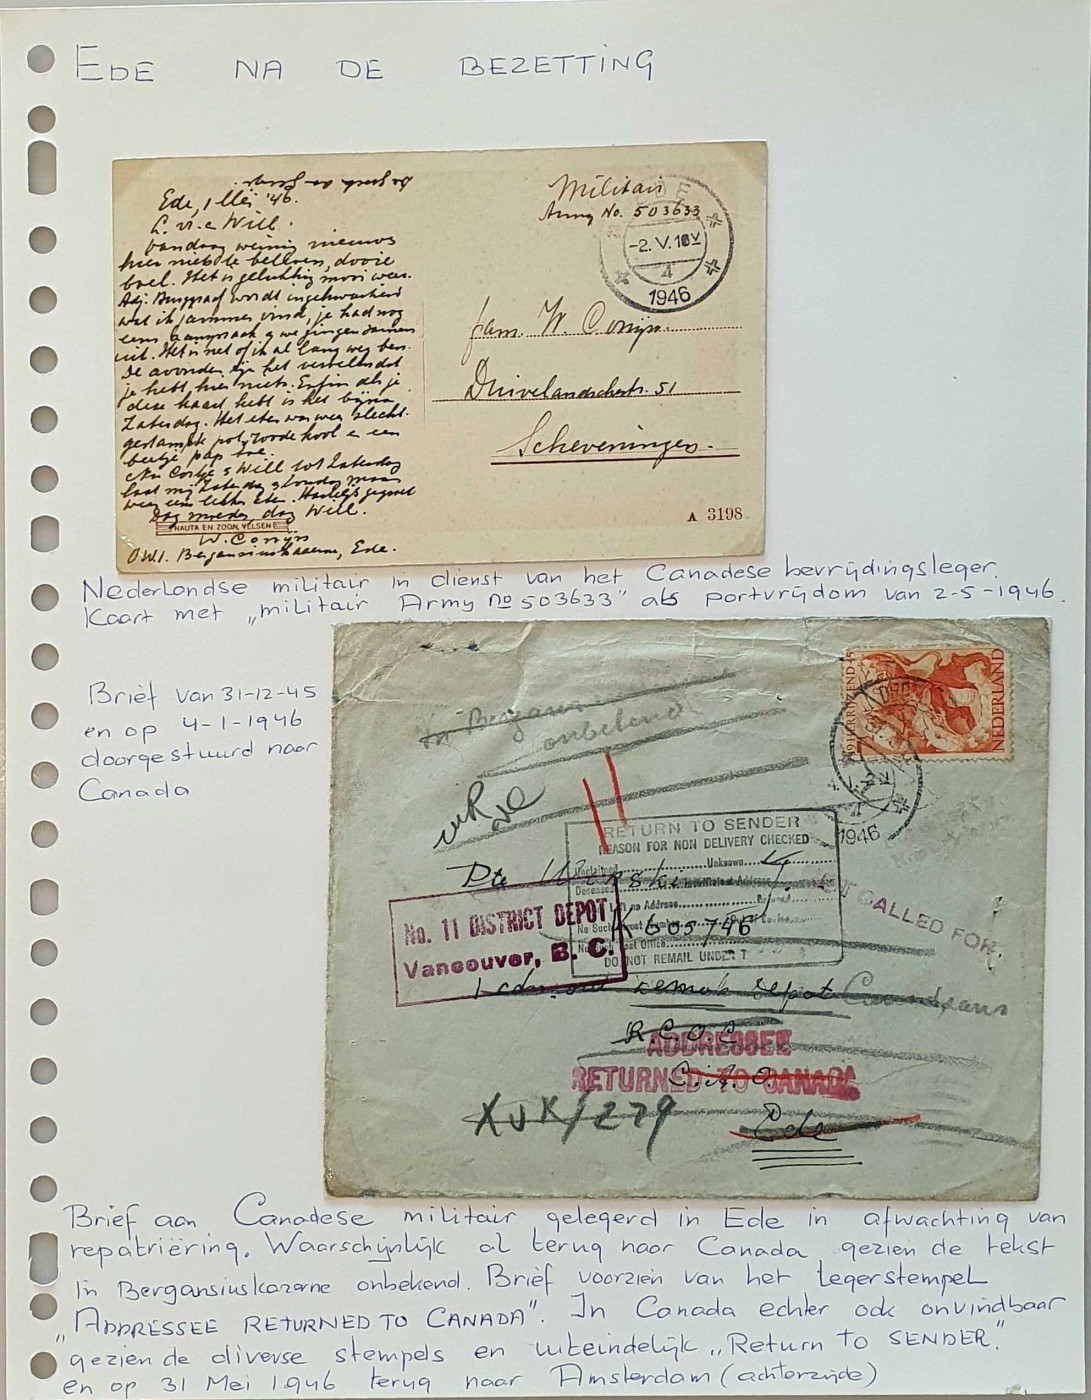 EDE NA DE BEZETTING
Ede, 1 Mei '46.
L. v. e Will.
Vandaag weinig nieuws
hier niets te beleven, dooie
boel. Het is gelukkig mooi weer.
Adj. Burggraaf wordt ingekwartierd
wat ik jammer vind, je had nog
een aanspraak & we gingen samen
uit. Het is net of ik al lang weg ben.
De avonden zijn het vervelendst
je hebt hier niets. Enfin als je
deze kaart hebt is het bijna
Zaterdag. Het eten was weer slecht.
gestampte pot, roode kool e een
beetje pap toe.
Nu Corrtje & Will tot Zaterdag
laat mij Zaterdag & Zondag maar
weer een lekker eten. Hartelijk gegroet
Dag moeder, dag Will.
NAUTA EN ZOON, VELSEN
W. Conijn
O.W.I. Bergansiuskazerne, Ede.
Militair
Army No. 503633
EDE
-2. V. 10V
4
1946
fam. W. Conijn
Duivelandschestr. 51
Scheveningen.
A 3198
Nederlandse militair in dienst van het Canadese bevrijdingsleger.
Kaart met „militair Army No 503633" als portvrijdom van 2-5-1946.
Brief van 31-12-45
en op 4-1-1946
doorgestuurd naar
Canada
In Bergansius
onbekend
NEDERLAND
1946
RETURN TO SENDER
REASON FOR NON DELIVERY CHECKED
Unclaimed Unknown
Deceased
no Address
No Such
Office
DO NOT REMAIL UNDER T
Pte
K 605746
No. 11 DISTRICT DEPOT
Vancouver, B. C.
T CALLED FOR.
depot
R.C.O.C
ADDRESSEE
RETURNED TO CANADA
C.A.O
XUK/229
Ede
Brief aan Canadese militair gelegerd in Ede in afwachting van
repatriëring. Waarschijnlijk al terug naar Canada gezien de tekst
In Bergansiuskazerne onbekend. Brief voorzien van het legerstempel
„ADDRESSEE RETURNED TO CANADA". In Canada echter ook onvindbaar
gezien de diverse stempels en uiteindelijk „Return to SENDER".
en op 31 Mei 1946 terug naar Amsterdam (achterzijde)